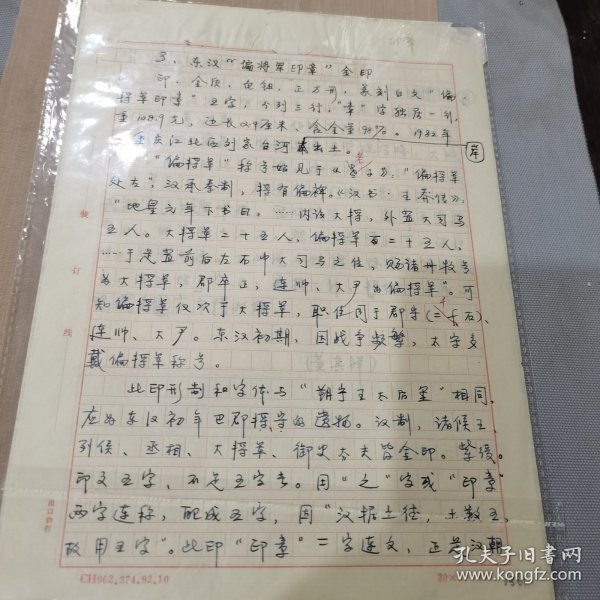 3、东汉“偏将军印章”金印
印,金质,龟钮,正方形,篆刻白文“偏
将军印章”五字,分列三行,“章”字独居一列,
重108.9克,边长2.4厘米,含金量98%。1982年
重庆江北区刘家台河岸出土。
“偏将军”称号始见于《老子》,“偏将军
处左”,汉承秦制,将有偏裨。《汉书·王莽传》,
“地皇元年下书曰,……内设大将,外置大司马
五人。大将军二十五人,偏将军百二十五人,
……于是置前后左右中大司马之位,赐诸州牧号
为大将军,郡卒正,连帅、大尹为偏将军”。可
知偏将军仅次于大将军,职位同于郡守(二千石)、
连帅、大尹。东汉初期,因战争频繁,太守多
戴偏将军称号。
此印形制和字体与“朔宁王太后玺”相同,
应为东汉初年巴郡将守的遗物。汉制,诸侯王、
列侯、丞相、大将军、御史大夫皆金印。紫绶。
印文五字,不足五字者。用“之”字或“印章”
两字连称,配成五字,因“汉据土德,土数五,
故用五字”。此印“印章”二字连文,正是汉朝
装
订
线
CH002.374.92.10
孔夫子旧书网
www.kongfz.com